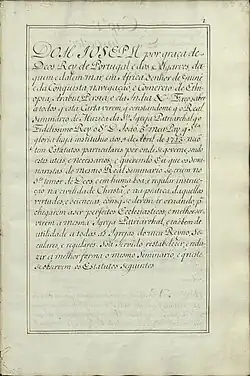 DOM JOSEPH por graça de
Deos, Rey de Portugal e dos Algarves, da
quem e dalem mar, em Africa Senhor de Guiné
e da Conquista, navegação, e Comercio de Ethi
opia, Arabia, Persia, e da India &. Faço saber
a todos q esta Carta virem, q constandome q o Real
Seminario de Muzica da Sta Igreja Patriarchal q o
Fidelissimo Rey o S. D. João 5º meu Pay, q Sta
gloria haja instituhio aos 9 de Abril de 1713 não
tem Estatutos particulares por onde se governe, sendo
estes uteis, e necessarios, e querendo Eu que os Semi
naristas do mesmo Real Seminario se criem no
Sto temor de Deos, com huma boa, e regular instruc
ção na civilidade Christã, e na pratica daquellas
virtudes, e sciencias, com q se devem ir criando pa
chegarem a ser perfeitos Ecclesiasticos, e melhor ser
virem a mesma Igreja Patriarchal, e tambem de
utilidade a todas as Igrejas do meu Reyno, Se
culares, e regulares. Sou Servido estabelecer, e redu
zir a melhor forma o mesmo Seminario, e que nelle
se observem os Estatutos seguintes